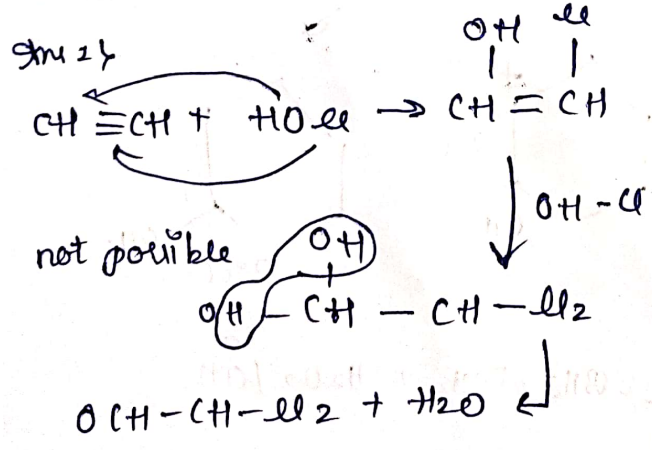 OH Cl
CH ≡ CH + HOCl → CH = CH
OH - Cl
not possible OH
OH - CH - CH - Cl2
OCH - CH - Cl2 + H2O